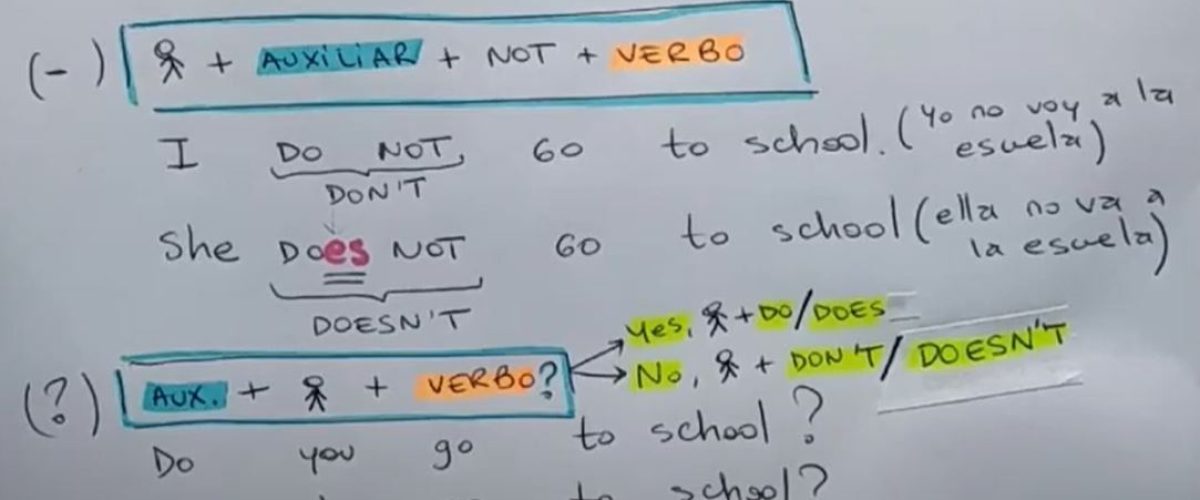 (-) + AUXILIAR + NOT + VERBO
I DO NOT GO to school. (Yo no voy a la escuela)
DON'T
She DOes NOT GO to school (ella no va a la escuela)
DOESN'T
Yes, + DO/DOES
(?) AUX. + + VERBO?
No, + DON'T/DOESN'T
Do you go to school?
to school?